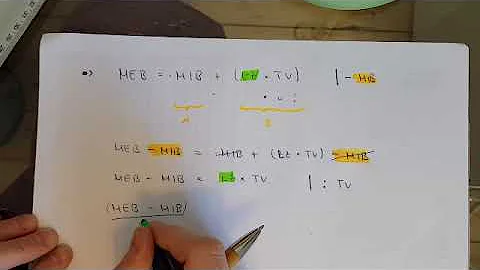 MEB = MIB + (Lt • TV) | - MIB
MEB - MIB = MIB + (Lt • TV) - MIB
MEB - MIB = Lt • TV | : TV
(MEB - MIB)